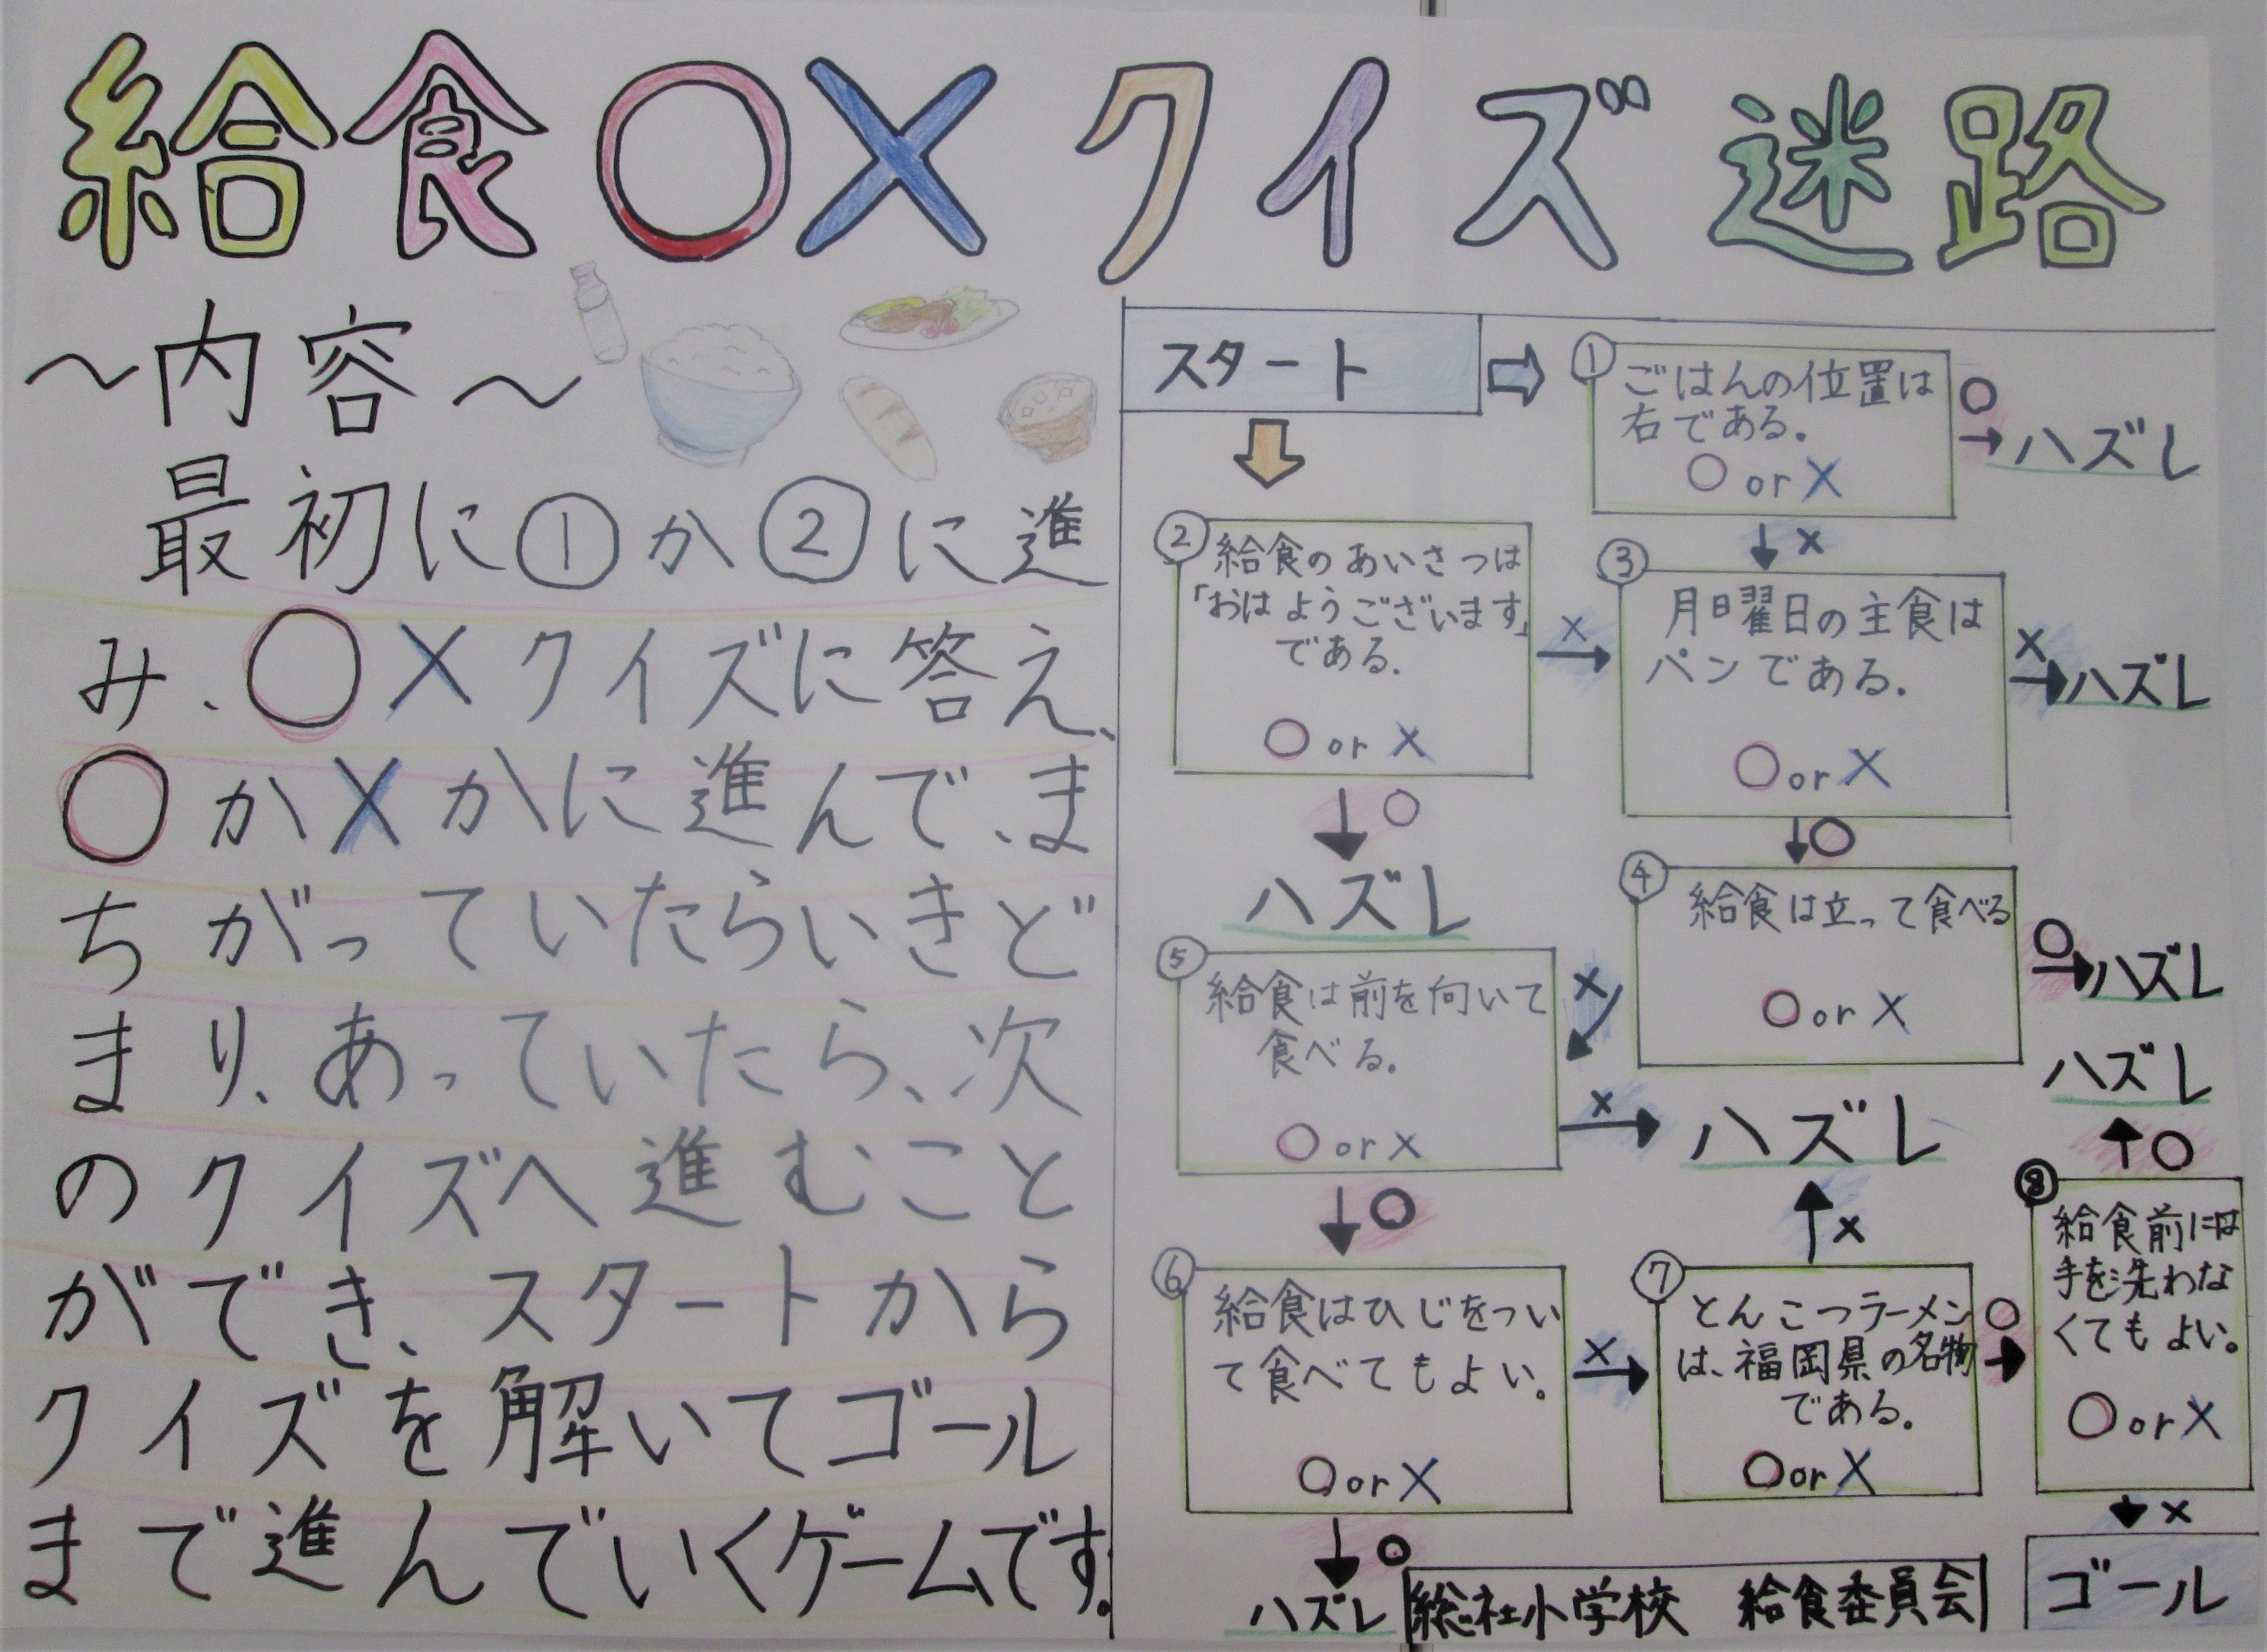 給食○×クイズ迷路
～内容～
最初に①か②に進
み、○×クイズに答え、
○か×かに進んで、ま
ちがっていたらいきど
まり、あっていたら、次
のクイズへ進むこと
ができ、スタートから
クイズを解いてゴール
まで進んでいくゲームです。
スタート
①
ごはんの位置は
右である。
○or×
○
→ハズレ
↓×
②
給食のあいさつは
「おはようございます」
である。
○or×
×
→
↓○
ハズレ
③
月曜日の主食は
パンである。
○or×
×
→ハズレ
↓○
④
給食は立って食べる
○or×
○
→ハズレ
×
⑤
給食は前を向いて
食べる。
○or×
×
→ハズレ
↓○
⑥
給食はひじをつい
て食べてもよい。
○or×
×
→
↓○
ハズレ
⑦
とんこつラーメン
は、福岡県の名物
である。
○or×
↑×
○
→
⑧
給食前には
手を洗わな
くてもよい。
○or×
↑○
ハズレ
↓×
ゴール
総社小学校 給食委員会